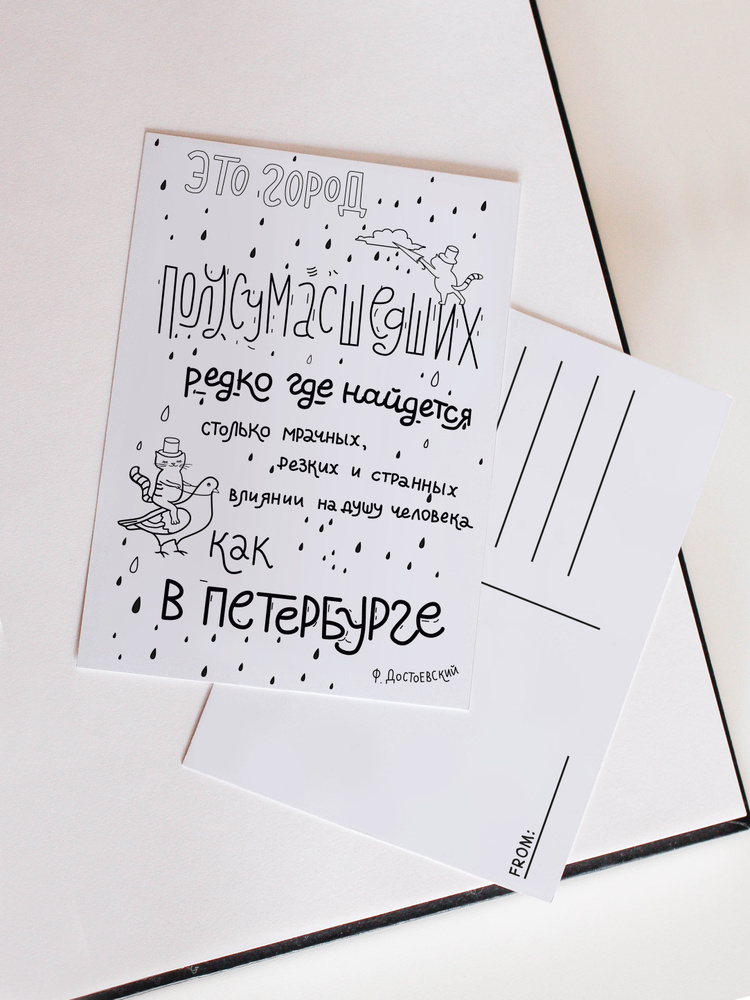 ЭТО ГОРОД
ПОЛУСУМАСШЕДШИХ
редко где найдется
столько мрачных,
резких и странных
влиянии на душу человека
как
в Петербурге
Ф. Достоевский
FROM: